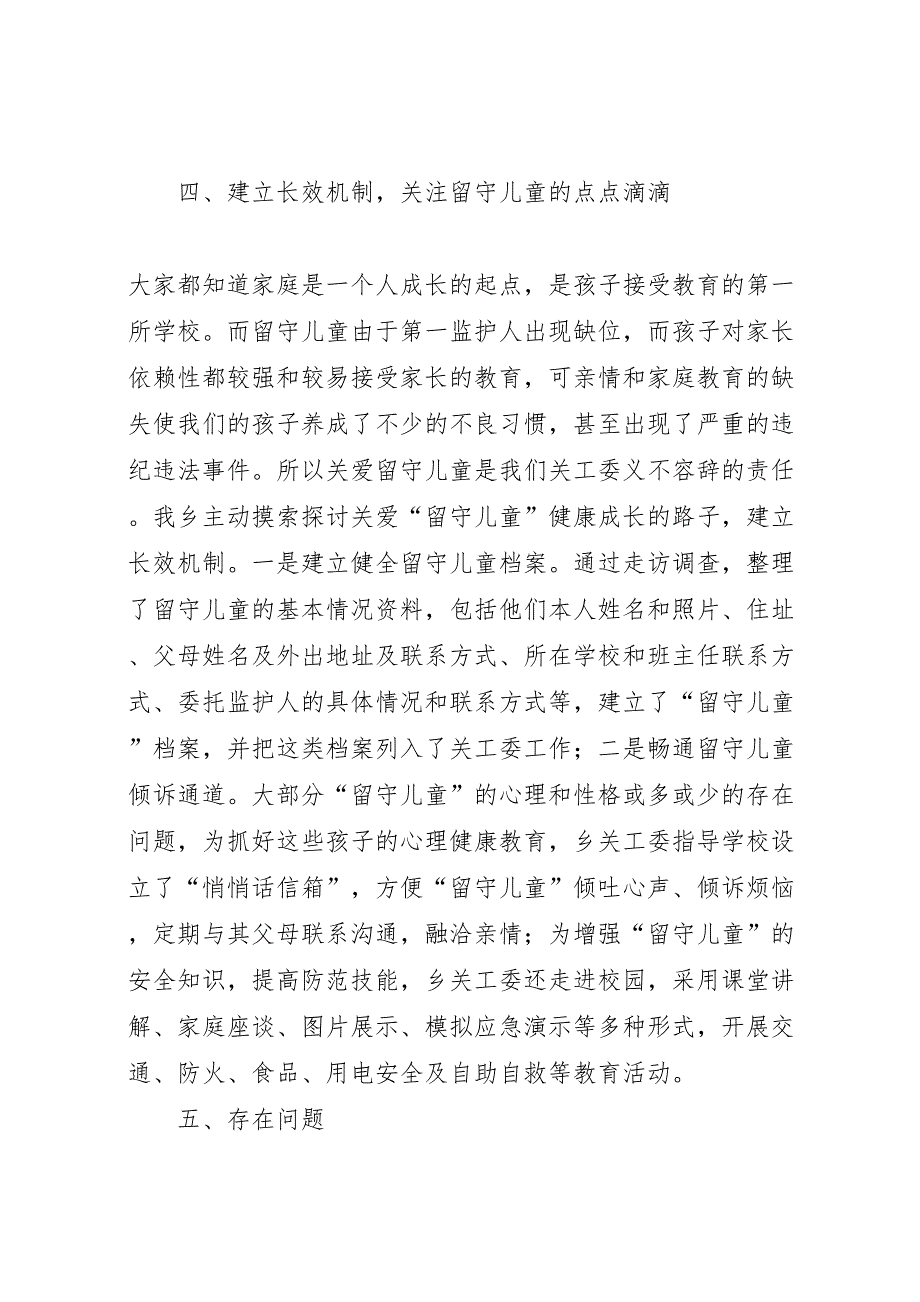 四、建立长效机制，关注留守儿童的点点滴滴
大家都知道家庭是一个人成长的起点，是孩子接受教育的第一
所学校。而留守儿童由于第一监护人出现缺位，而孩子对家长
依赖性都较强和较易接受家长的教育，可亲情和家庭教育的缺
失使我们的孩子养成了不少的不良习惯，甚至出现了严重的违
纪违法事件。所以关爱留守儿童是我们关工委义不容辞的责任
。我乡主动摸索探讨关爱“留守儿童”健康成长的路子，建立
长效机制。一是建立健全留守儿童档案。通过走访调查，整理
了留守儿童的基本情况资料，包括他们本人姓名和照片、住址
、父母姓名及外出地址及联系方式、所在学校和班主任联系方
式、委托监护人的具体情况和联系方式等，建立了“留守儿童
”档案，并把这类档案列入了关工委工作；二是畅通留守儿童
倾诉通道。大部分“留守儿童”的心理和性格或多或少的存在
问题，为抓好这些孩子的心理健康教育，乡关工委指导学校设
立了“悄悄话信箱”，方便“留守儿童”倾吐心声、倾诉烦恼
，定期与其父母联系沟通，融洽亲情；为增强“留守儿童”的
安全知识，提高防范技能，乡关工委还走进校园，采用课堂讲
解、家庭座谈、图片展示、模拟应急演示等多种形式，开展交
通、防火、食品、用电安全及自助自救等教育活动。
五、存在问题